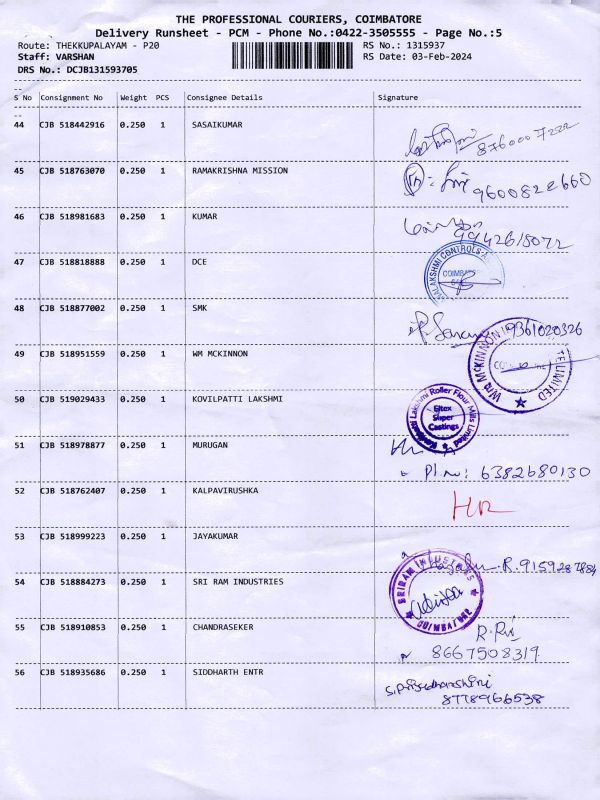 THE PROFESSIONAL COURIERS, COIMBATORE
Delivery Runsheet - PCM - Phone No.:0422-3505555 - Page No.:5
Route: THEKKUPALAYAM - P20 RS No.: 1315937
Staff: VARSHAN RS Date: 03-Feb-2024
DRS No.: DCJB131593705
S No Consignment No Weight PCS Consignee Details Signature
44 CJB 518442916 0.250 1 SASAIKUMAR
8760007222
45 CJB 518763070 0.250 1 RAMAKRISHNA MISSION
9600822660
46 CJB 518981683 0.250 1 KUMAR
9942618072
47 CJB 518818888 0.250 1 DCE
LAKSHMI CONTROLS
48 CJB 518877002 0.250 1 SMK
9361020326
49 CJB 518951559 0.250 1 WM MCKINNON
Wm MCKINNON LIMITED
50 CJB 519029433 0.250 1 KOVILPATTI LAKSHMI
Kovilpatti Lakshmi Roller Flour Mills Limited
Eltex
Super
Castings
51 CJB 518978877 0.250 1 MURUGAN
6382680130
52 CJB 518762407 0.250 1 KALPAVIRUSHKA
53 CJB 518999223 0.250 1 JAYAKUMAR
R. 9159287884
54 CJB 518884273 0.250 1 SRI RAM INDUSTRIES
SRIRAM INDUSTRIES
COIMBATORE
55 CJB 518910853 0.250 1 CHANDRASEKER
8667508319
56 CJB 518935686 0.250 1 SIDDHARTH ENTR
S. Priyadharshini
8778966538